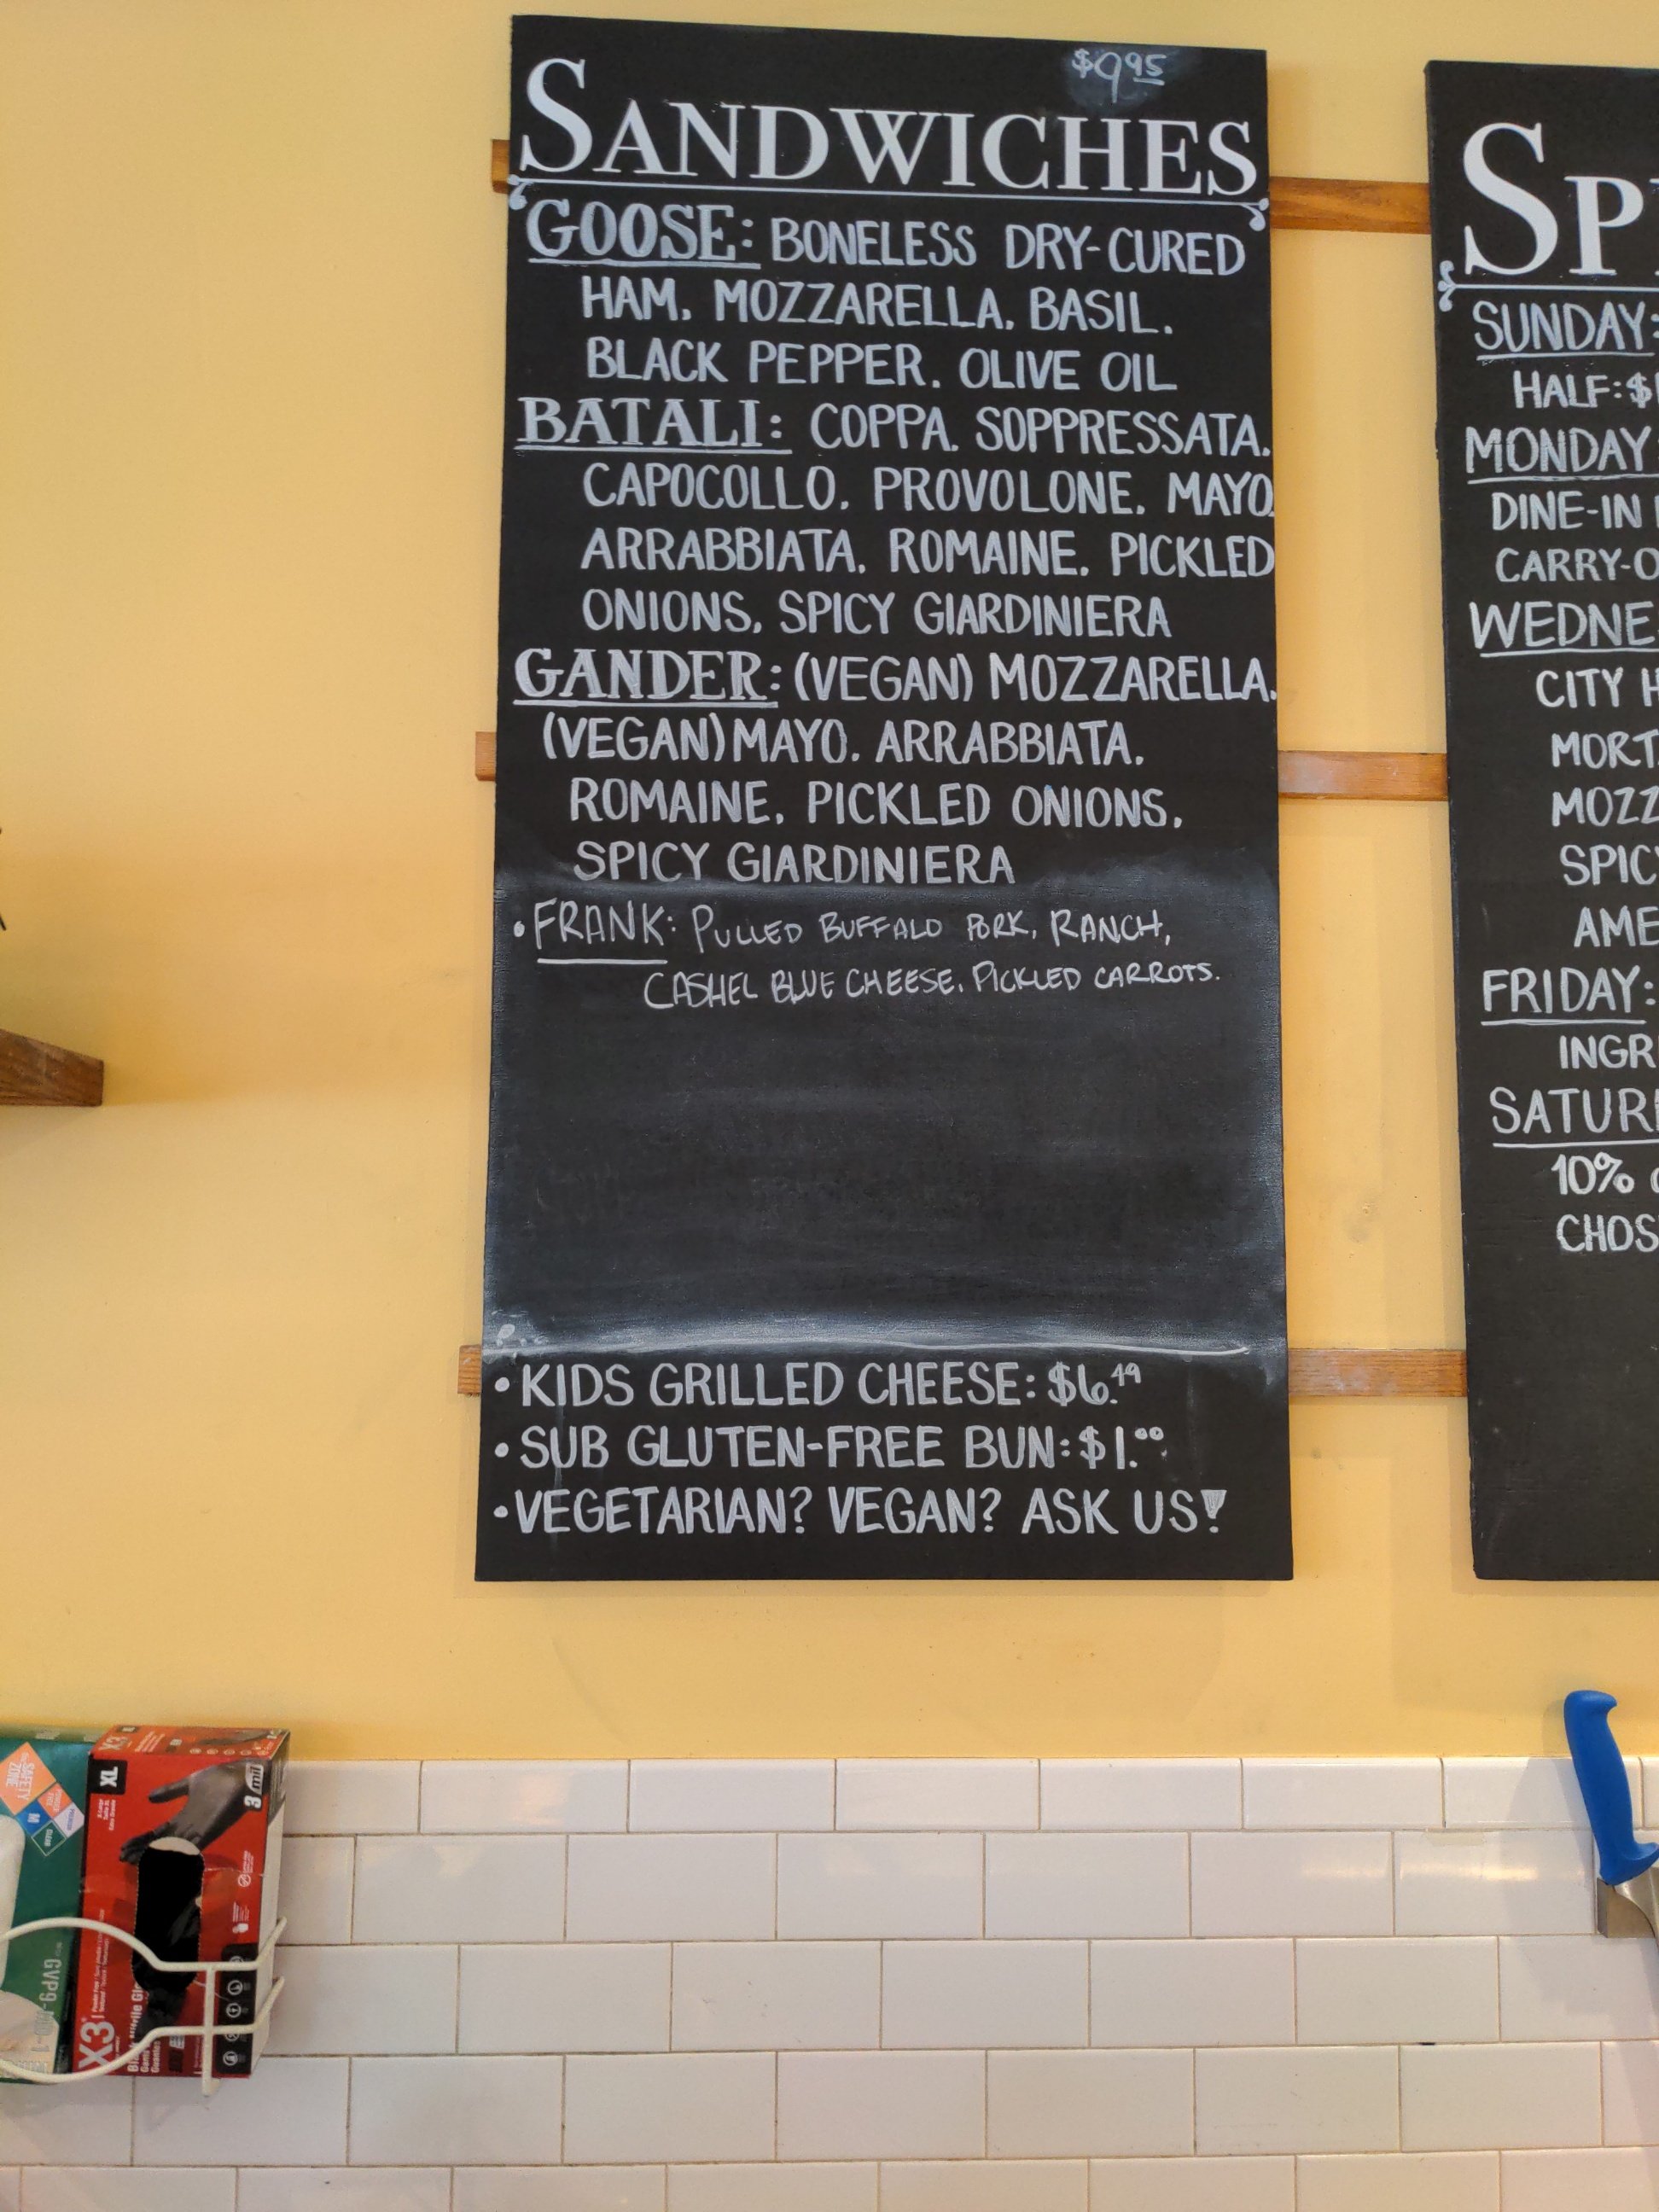 $9.95
SANDWICHES
GOOSE: BONELESS DRY-CURED
HAM, MOZZARELLA, BASIL,
BLACK PEPPER, OLIVE OIL
BATALI: COPPA, SOPPRESSATA,
CAPOCOLLO, PROVOLONE, MAYO,
ARRABBIATA, ROMAINE, PICKLED
ONIONS, SPICY GIARDINIERA
GANDER: (VEGAN) MOZZARELLA,
(VEGAN) MAYO, ARRABBIATA,
ROMAINE, PICKLED ONIONS,
SPICY GIARDINIERA
• FRANK: PULLED BUFFALO PORK, RANCH,
CASHEL BLUE CHEESE, PICKLED CARROTS.
• KIDS GRILLED CHEESE: $6.49
• SUB GLUTEN-FREE BUN: $1.00
• VEGETARIAN? VEGAN? ASK US!
SP
SUNDAY:
HALF: $
MONDAY
DINE-IN
CARRY-O
WEDNE
CITY H
MORT
MOZZ
SPIC
AME
FRIDAY:
INGR
SATUR
10%
CHOS
SAFETY ZONE
M
XL
X3
3 mil
X3